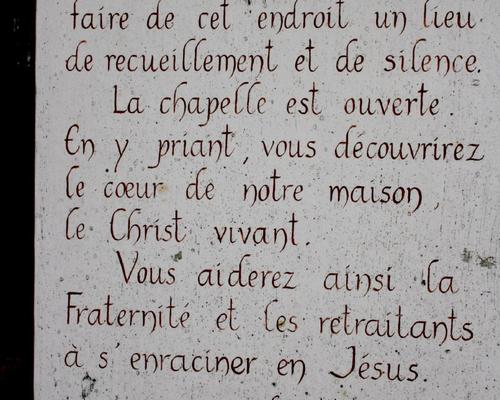 faire de cet endroit un lieu
de recueillement et de silence.
La chapelle est ouverte.
En y priant, vous découvrirez
le cœur de notre maison,
le Christ vivant.
Vous aiderez ainsi la
Fraternité et les retraitants
à s'enraciner en Jésus.